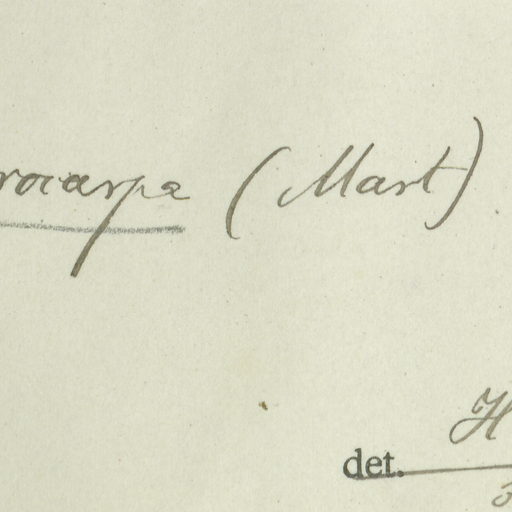 rocarpa (Mart)
H
det.